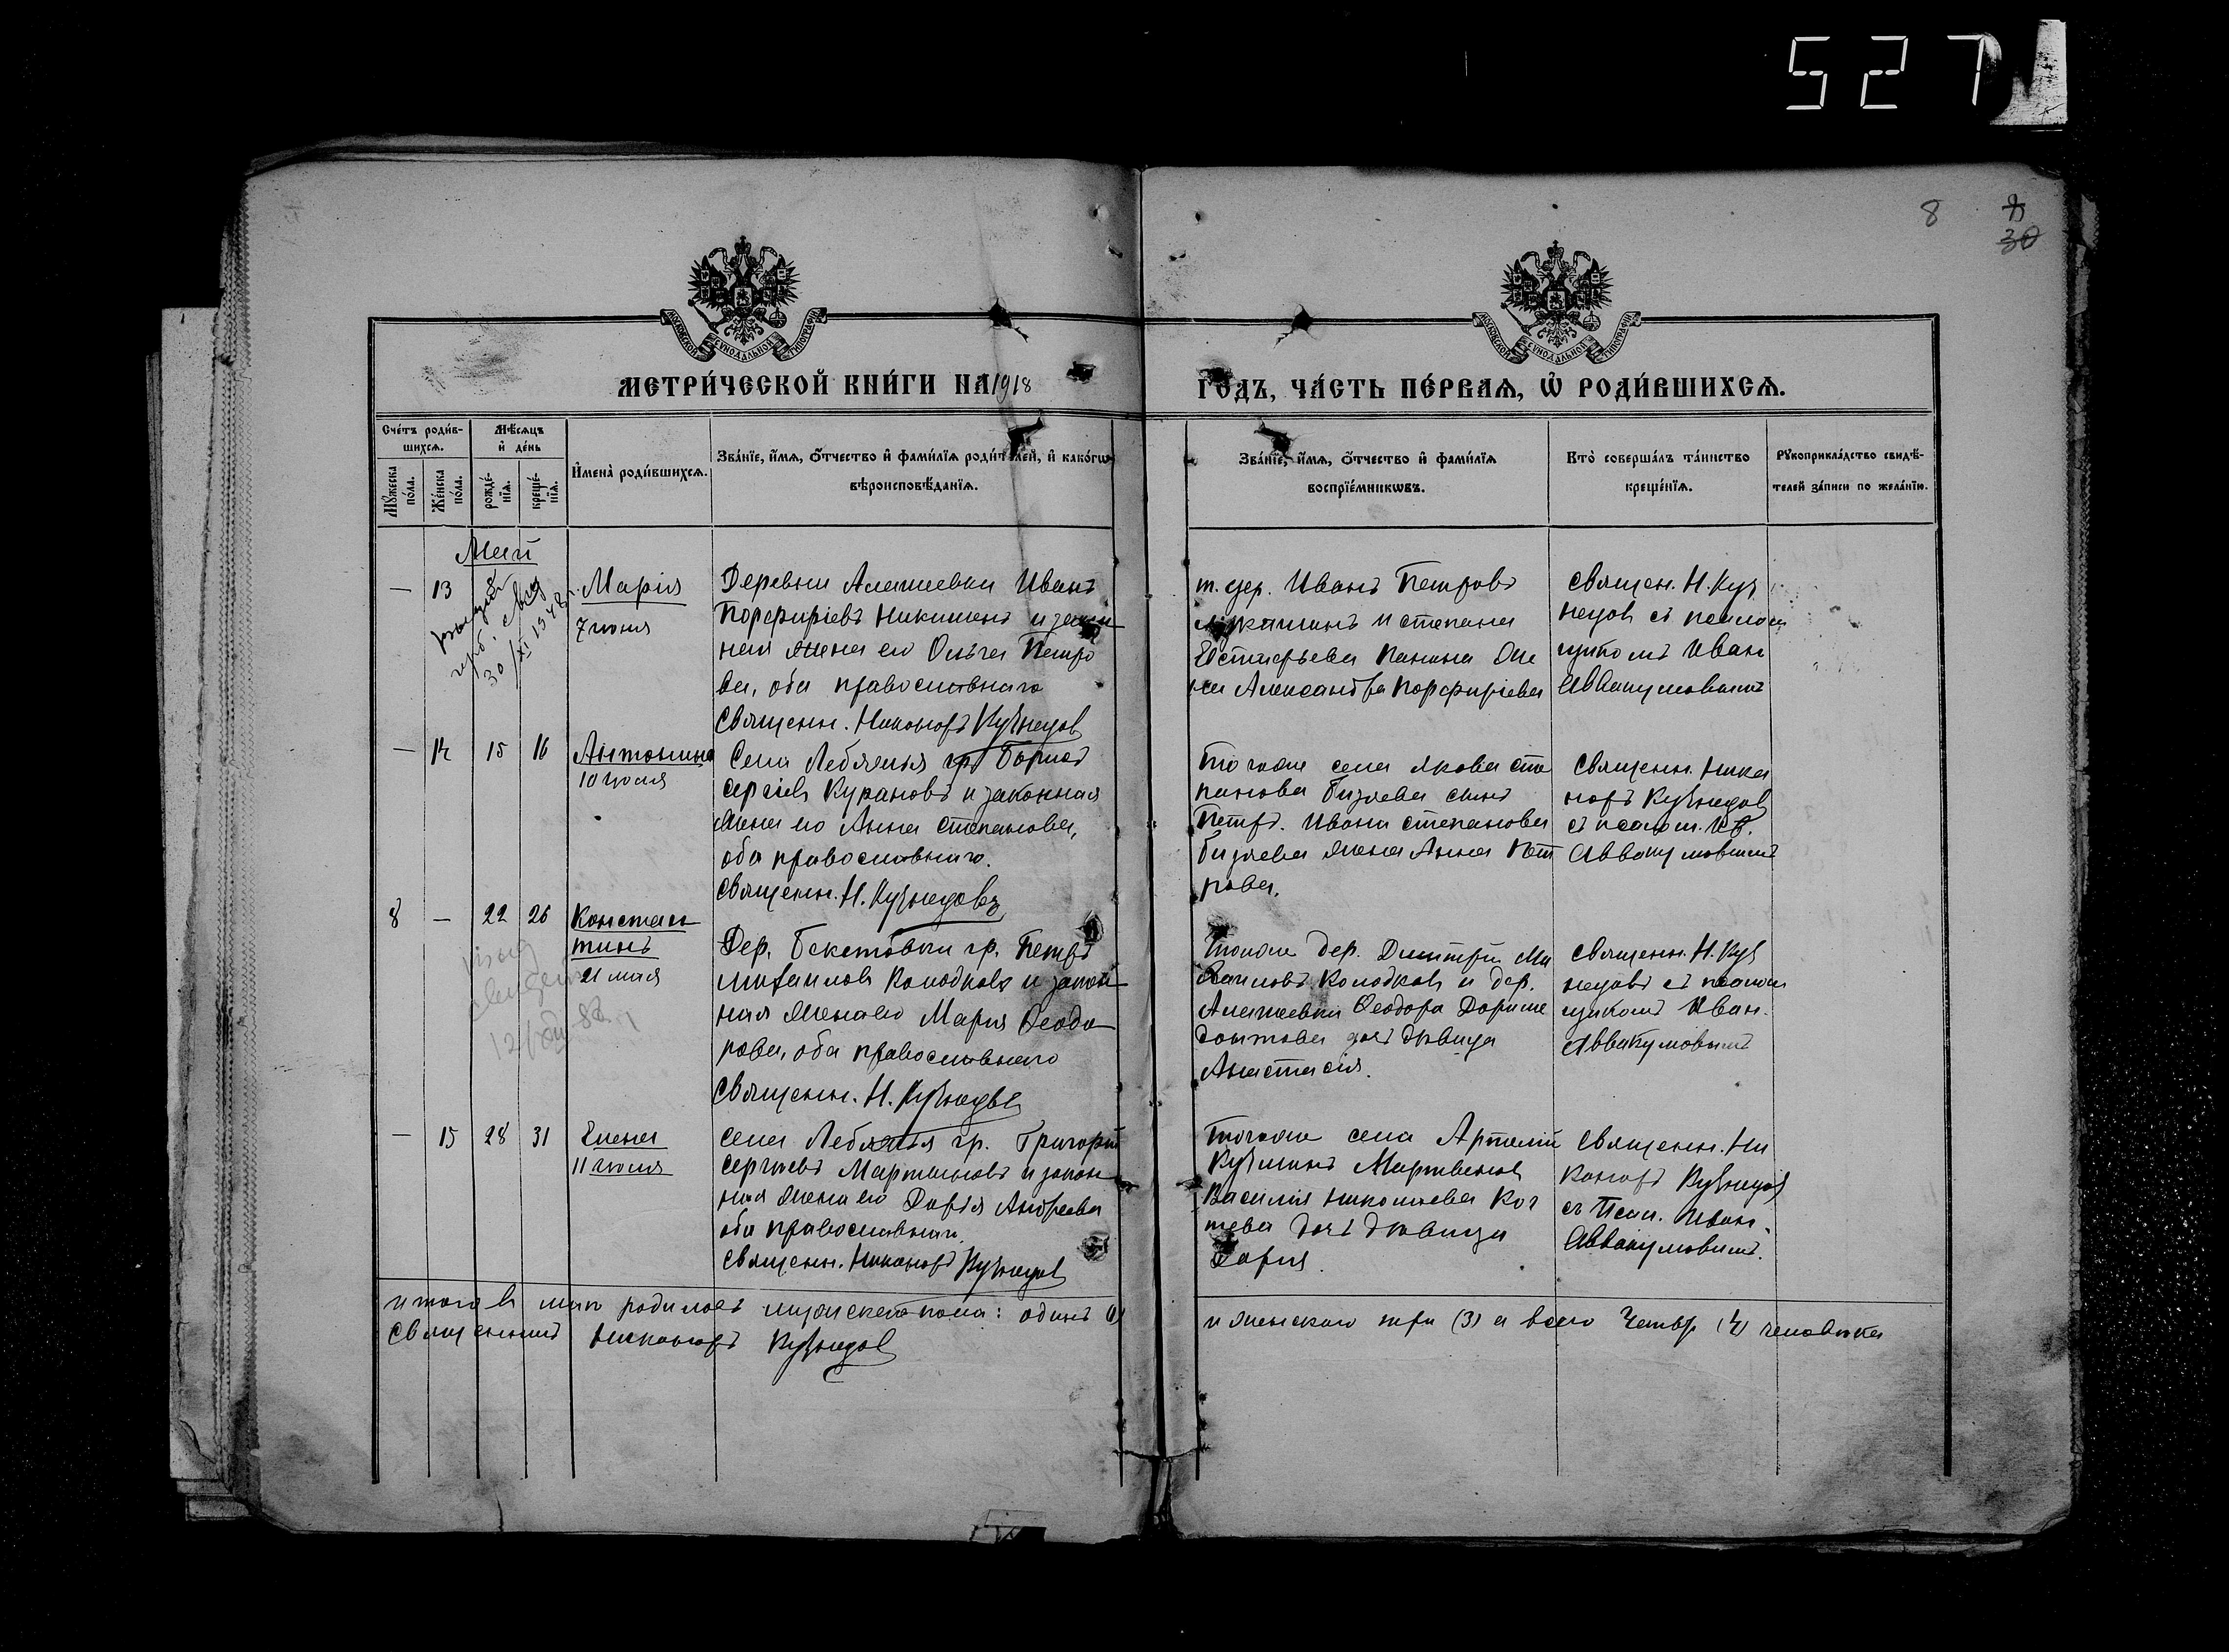 527
8
8
30
МОСКОВСКОЙ СѴНОДАЛЬНОЙ ТИПОГРАФІИ
МОСКОВСКОЙ СѴНОДАЛЬНОЙ ТИПОГРАФІИ
МЕТРИ́ЧЕСКОЙ КНИ́ГИ НА 1918
ГОДЪ, ЧА́СТЬ ПЕ́РВАЯ, Ѡ РОДИ́ВШИХСЯ.
Сче́тъ роди́в-
шихсѧ.
Мѣ́сѧцъ
и҆ де́нь
Мꙋ́жеска по́ла.
Же́нска по́ла.
рожде́-
нїѧ.
креще́-
нїѧ.
И҆мена̀ роди́вшихсѧ.
Зва́нїе, и҆́мѧ, ѻ҆́тчество и҆ фами́лїѧ роди́телей, и҆ како́гѡ
вѣроисповѣ́данїѧ.
Зва́нїе, и҆́мѧ, ѻ҆́тчество и҆ фами́лїѧ
воспрїе́мникѡвъ.
Кто̀ соверша́лъ та́инство
креще́нїѧ.
Рꙋкоприкла́дство свидѣ́-
телей за́писи по жела́нїю.
Май
— 13 Марія
7 июня
30/XI 1948 г.
Деревни Алешевки Иванъ
Порфиріевъ Никишинъ и закон
ная жена его Ольга Петро
ва, оба православнаго
Священн. Никаноръ Кузнецов
т. дер. Иванъ Петровъ
и степана
Евстафьева Панина же
на Александра Порфиріева
Священ. Н. Куз
нецов съ псалом
щикомъ Иван
Аввакумовымъ
— 14 15 16 Антонина
10 июня
Села Лебяжья гр. Борисъ
Сергіевъ Курановъ и законная
жена его Анна Степанова,
оба православнаго.
Священн. Н. Кузнецовъ
Того же села Якова Сте
панова Бизяева сынъ
Петръ. Ивана Степанова
Бизяева жена Анна Пет
рова.
Священн. Ника
норъ Кузнецов
съ псалом. Ив.
Аввакумовымъ
8 — 22 26 Констан
тинъ
21 мая
Дер. Бекетовки гр. Петръ
Михаиловъ Колодковъ и закон
ная жена его Марія Ѳеодо
рова, оба православнаго
Священн. Н. Кузнецовъ
Тойже дер. Димитрій Ми
хаиловъ Колодковъ и дер.
Алешевки Ѳеодора
дочь дѣвица
Анастасія.
Священн. Н. Куз
нецовъ съ псалом
щикомъ Иван.
Аввакумовымъ
— 15 28 31 Елена
11 июня
Села Лебяжья гр. Григорій
Сергіевъ Мартыновъ и закон
ная жена его Дарья Андреева
оба православнаго.
Священн. Никаноръ Кузнецов
Того же села Артемій
Кузминъ
Василія Николаева
дочь дѣвица
Дарія.
Священн. Ни
каноръ Кузнецов
съ Псал. Иван.
Аввакумовымъ.
Итого въ маѣ родилось мужскаго пола: одинъ (1)
и женскаго три (3) а всего Четыр (4) человѣка
Священникъ Никаноръ Кузнецов